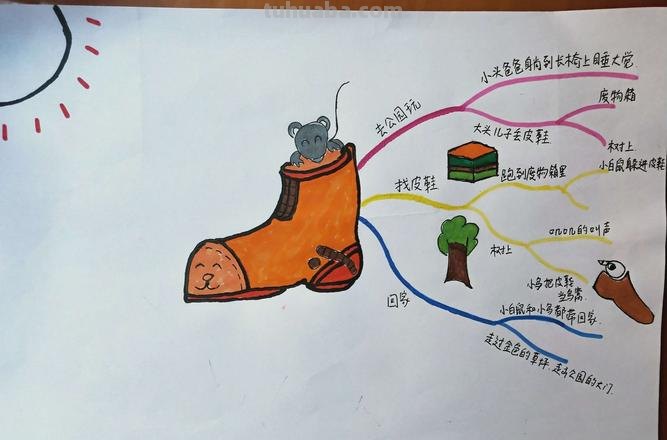 tuhuaba.com
去公园玩
小头爸爸躺到长椅上睡大觉
大头儿子丢皮鞋
废物箱
树上
找皮鞋
跑到废物箱里
小白鼠躲进皮鞋
吱吱的叫声
树上
小鸟把皮鞋
当鸟窝
回家
小白鼠和小鸟都带回家
走过金色的草坪.走出公园的大门